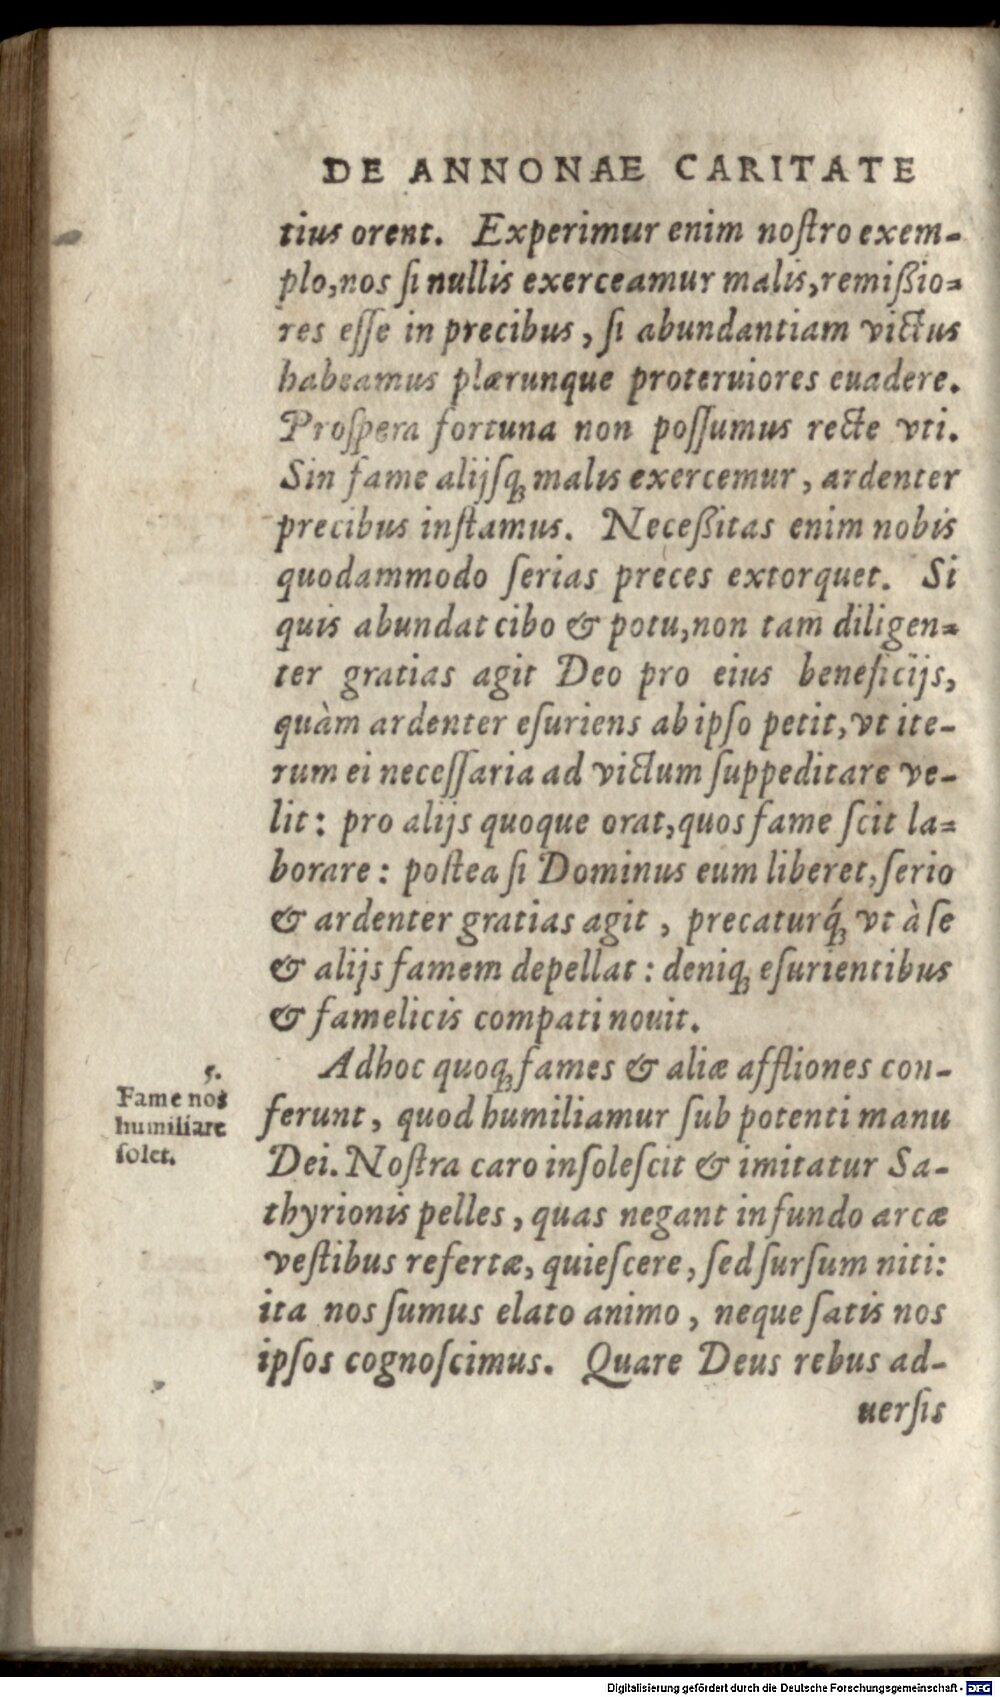 DE ANNONAE CARITATE
tius orent. Experimur enim noſtro exem-
plo, nos ſi nullis exerceamur malis, remißio=
res eſſe in precibus, ſi abundantiam victus
habeamus plærunque proteruiores euadere.
Proſpera fortuna non poſſumus recte vti.
Sin fame alijſq́; malis exercemur, ardenter
precibus inſtamus. Neceßitas enim nobis
quodammodo ſerias preces extorquet. Si
quis abundat cibo & potu, non tam diligen=
ter gratias agit Deo pro eius beneficijs,
quàm ardenter eſuriens ab ipſo petit, vt ite-
rum ei neceſſaria ad victum ſuppeditare ve-
lit: pro alijs quoque orat, quos fame ſcit la=
borare: poſtea ſi Dominus eum liberet, ſerio
& ardenter gratias agit, precaturq́; vt à ſe
& alijs famem depellat: deniq; eſurientibus
& famelicis compati nouit.
Adhoc quoq; fames & aliæ afflictiones con-
5.
Fame nos
humiliare
ſolet.
ferunt, quod humiliamur ſub potenti manu
Dei. Noſtra caro inſoleſcit & imitatur Sa-
thyrionis pelles, quas negant in fundo arcæ
veſtibus refertæ, quieſcere, ſed ſurſum niti:
ita nos ſumus elato animo, neque ſatis nos
ipſos cognoſcimus. Quare Deus rebus ad-
uerſis
Digitalisierung gefördert durch die Deutsche Forschungsgemeinschaft - DFG